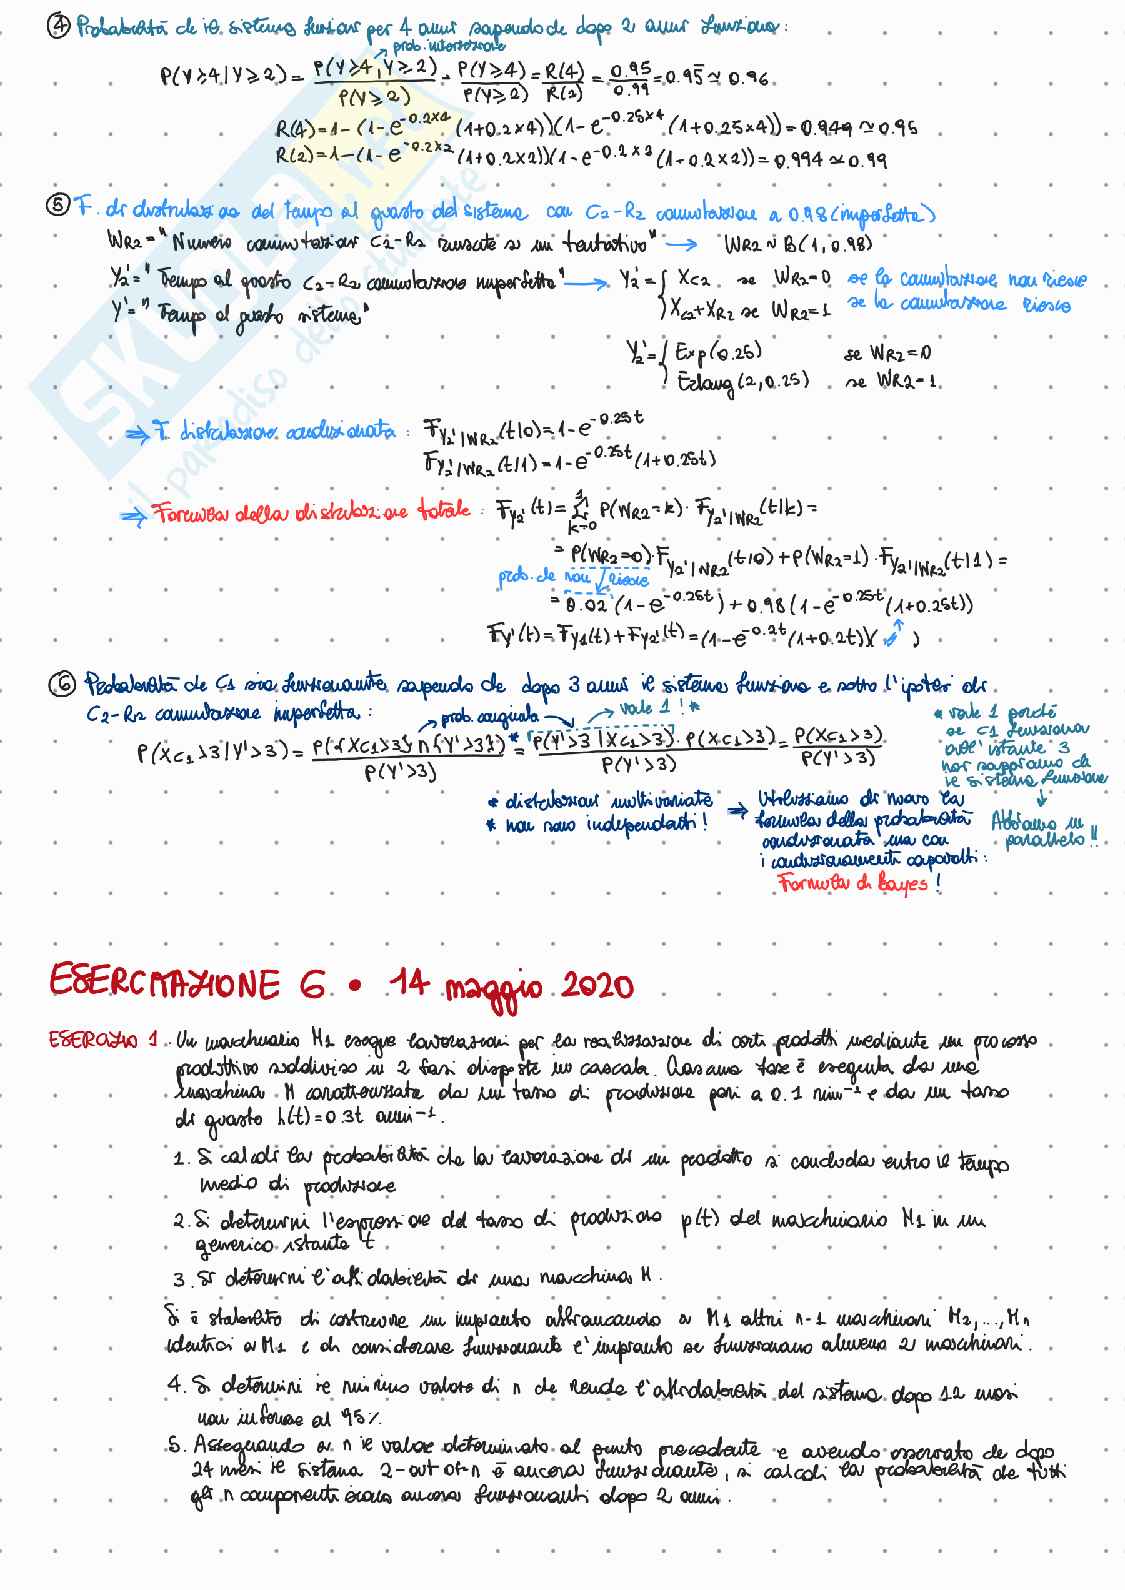 ④ Probabilità che il sistema funzioni per 4 anni sapendo che dopo 2 anni funziona:
prob. intersezione
P(Y≥4|Y≥2) = P(Y≥4, Y≥2)/P(Y≥2) = P(Y≥4)/P(Y≥2) = R(4)/R(2) = 0.95/0.99 = 0.95 ≃ 0.96
R(4)=1-(1-e^-0.2×4(1+0.2×4))(1-e^-0.25×4(1+0.25×4))=0.949≃0.95
R(2)=1-(1-e^-0.2×2(1+0.2×2))(1-e^-0.2×3(1-0.2×2))=0.994≃0.99
⑤ F. di distribuzione del tempo al guasto del sistema con C2-R2 commutazione a 0.98 (imperfetta)
WR2="Numero commutazioni C2-R2 riuscite su un tentativo" → WR2~B(1,0.98)
Y2'="Tempo al guasto C2-R2 commutazione imperfetta" → Y2'={ XC2 se WR2=0 se la commutazione non riesce
Y'="Tempo al guasto sistema" XC2+XR2 se WR2=1 se la commutazione riesce
Y2'={ Exp(0.25) se WR2=0
Erlang(2,0.25) se WR2=1
⇒ F. distribuzione condizionata: FY2'|WR2(t|0)=1-e^-0.25t
FY2'|WR2(t|1)=1-e^-0.25t(1+0.25t)
⇒ Formula della distribuzione totale: FY2'(t)=Σ(k=0..1) P(WR2=k)·FY2'|WR2(t|k)=
= P(WR2=0)·FY2'|WR2(t|0)+P(WR2=1)·FY2'|WR2(t|1)=
prob. che non riesce
= 0.02(1-e^-0.25t)+0.98(1-e^-0.25t(1+0.25t))
FY'(t)=FY1(t)+FY2'(t)=(1-e^-0.2t(1+0.2t))( )
⑥ Probabilità che C1 sia funzionante, sapendo che dopo 3 anni il sistema funziona e sotto l'ipotesi di
C2-R2 commutazione imperfetta:
prob. congiunta → vale 1! *
P(XC1>3|Y'>3) = P({XC1>3}∩{Y'>3})/P(Y'>3) * = P(Y'>3|XC1>3)·P(XC1>3)/P(Y'>3) = P(XC1>3)/P(Y'>3)
* vale 1 perché
se C1 funziona
all'istante 3
noi sappiamo che
il sistema funziona
↓
Abbiamo un
parallelo!!
* distribuzioni multivariate
* non sono indipendenti!
⇒ Utilizziamo di nuovo la
formula della probabilità
condizionata ma con
i condizionamenti capovolti:
Formula di Bayes!
ESERCITAZIONE 6 • 14 maggio 2020
ESERCIZIO 1. Un macchinario M1 esegue lavorazioni per la realizzazione di certi prodotti mediante un processo
produttivo suddiviso in 2 fasi disposte in cascata. Ciascuna fase è eseguita da una
macchina M caratterizzata da un tasso di produzione pari a 0.1 min⁻¹ e da un tasso
di guasto h(t)=0.3t anni⁻¹.
1. Si calcoli la probabilità che la lavorazione di un prodotto si concluda entro il tempo
medio di produzione
2. Si determini l'espressione del tasso di produzione p(t) del macchinario M1 in un
generico istante t
3. Si determini l'affidabilità di una macchina M.
Si è stabilito di costruire un impianto affiancando a M1 altri n-1 macchinari M2,...,Mn
identici a M1 e di considerare funzionante l'impianto se funzionano almeno 2 macchinari.
4. Si determini il minimo valore di n che rende l'affidabilità del sistema dopo 12 mesi
non inferiore al 95%.
5. Assegnando a n il valore determinato al punto precedente e avendo osservato che dopo
24 mesi il sistema 2-out of-n è ancora funzionante, si calcoli la probabilità che tutti
gli n componenti siano ancora funzionanti dopo 2 anni.
SKUOLA.net
il paradiso dello studente